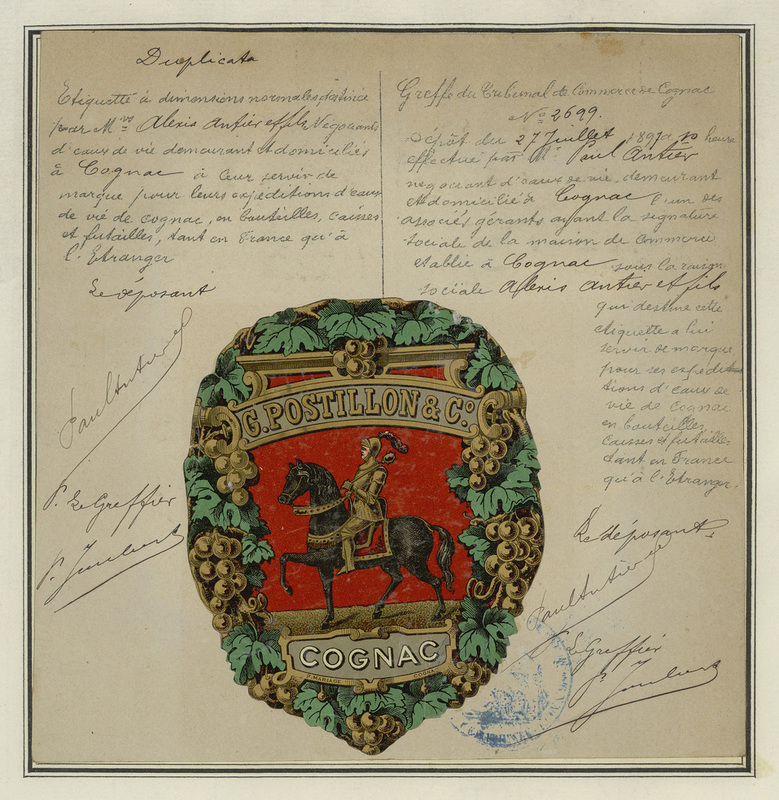 Duplicata
Etiquette à dimensions normales, destinée
pour Mrs Alexis Antier et fils Négociants
d'eaux de vie demeurant et domiciliés
à Cognac à leur servir de
marque pour leurs expéditions d'eaux
de vie de cognac, en bouteilles, caisses
et futailles, tant en France qu'à
l'Etranger
Le déposant
Paul Antier
P. Le Greffier
P. Joubert
Greffe du Tribunal de Commerce de Cognac
No 2699.
Dépôt du 27 Juillet 1897 à 10 heures
effectué par Mr Paul Antier
négociant d'eaux de vie, demeurant
et domicilié à Cognac l'un des
associés gérants ayant la signature
sociale de la maison de commerce
établie à Cognac sous la raison
sociale Alexis Antier et fils
qui destine cette
étiquette a lui
servir de marque
pour ses expédi
tions d'eaux de
vie de Cognac
en bouteilles,
caisses et futailles
tant en France
qu'à l'Etranger.
Le déposant
Paul Antier
P. Le Greffier
P. Joubert
G. POSTILLON & Co.
COGNAC